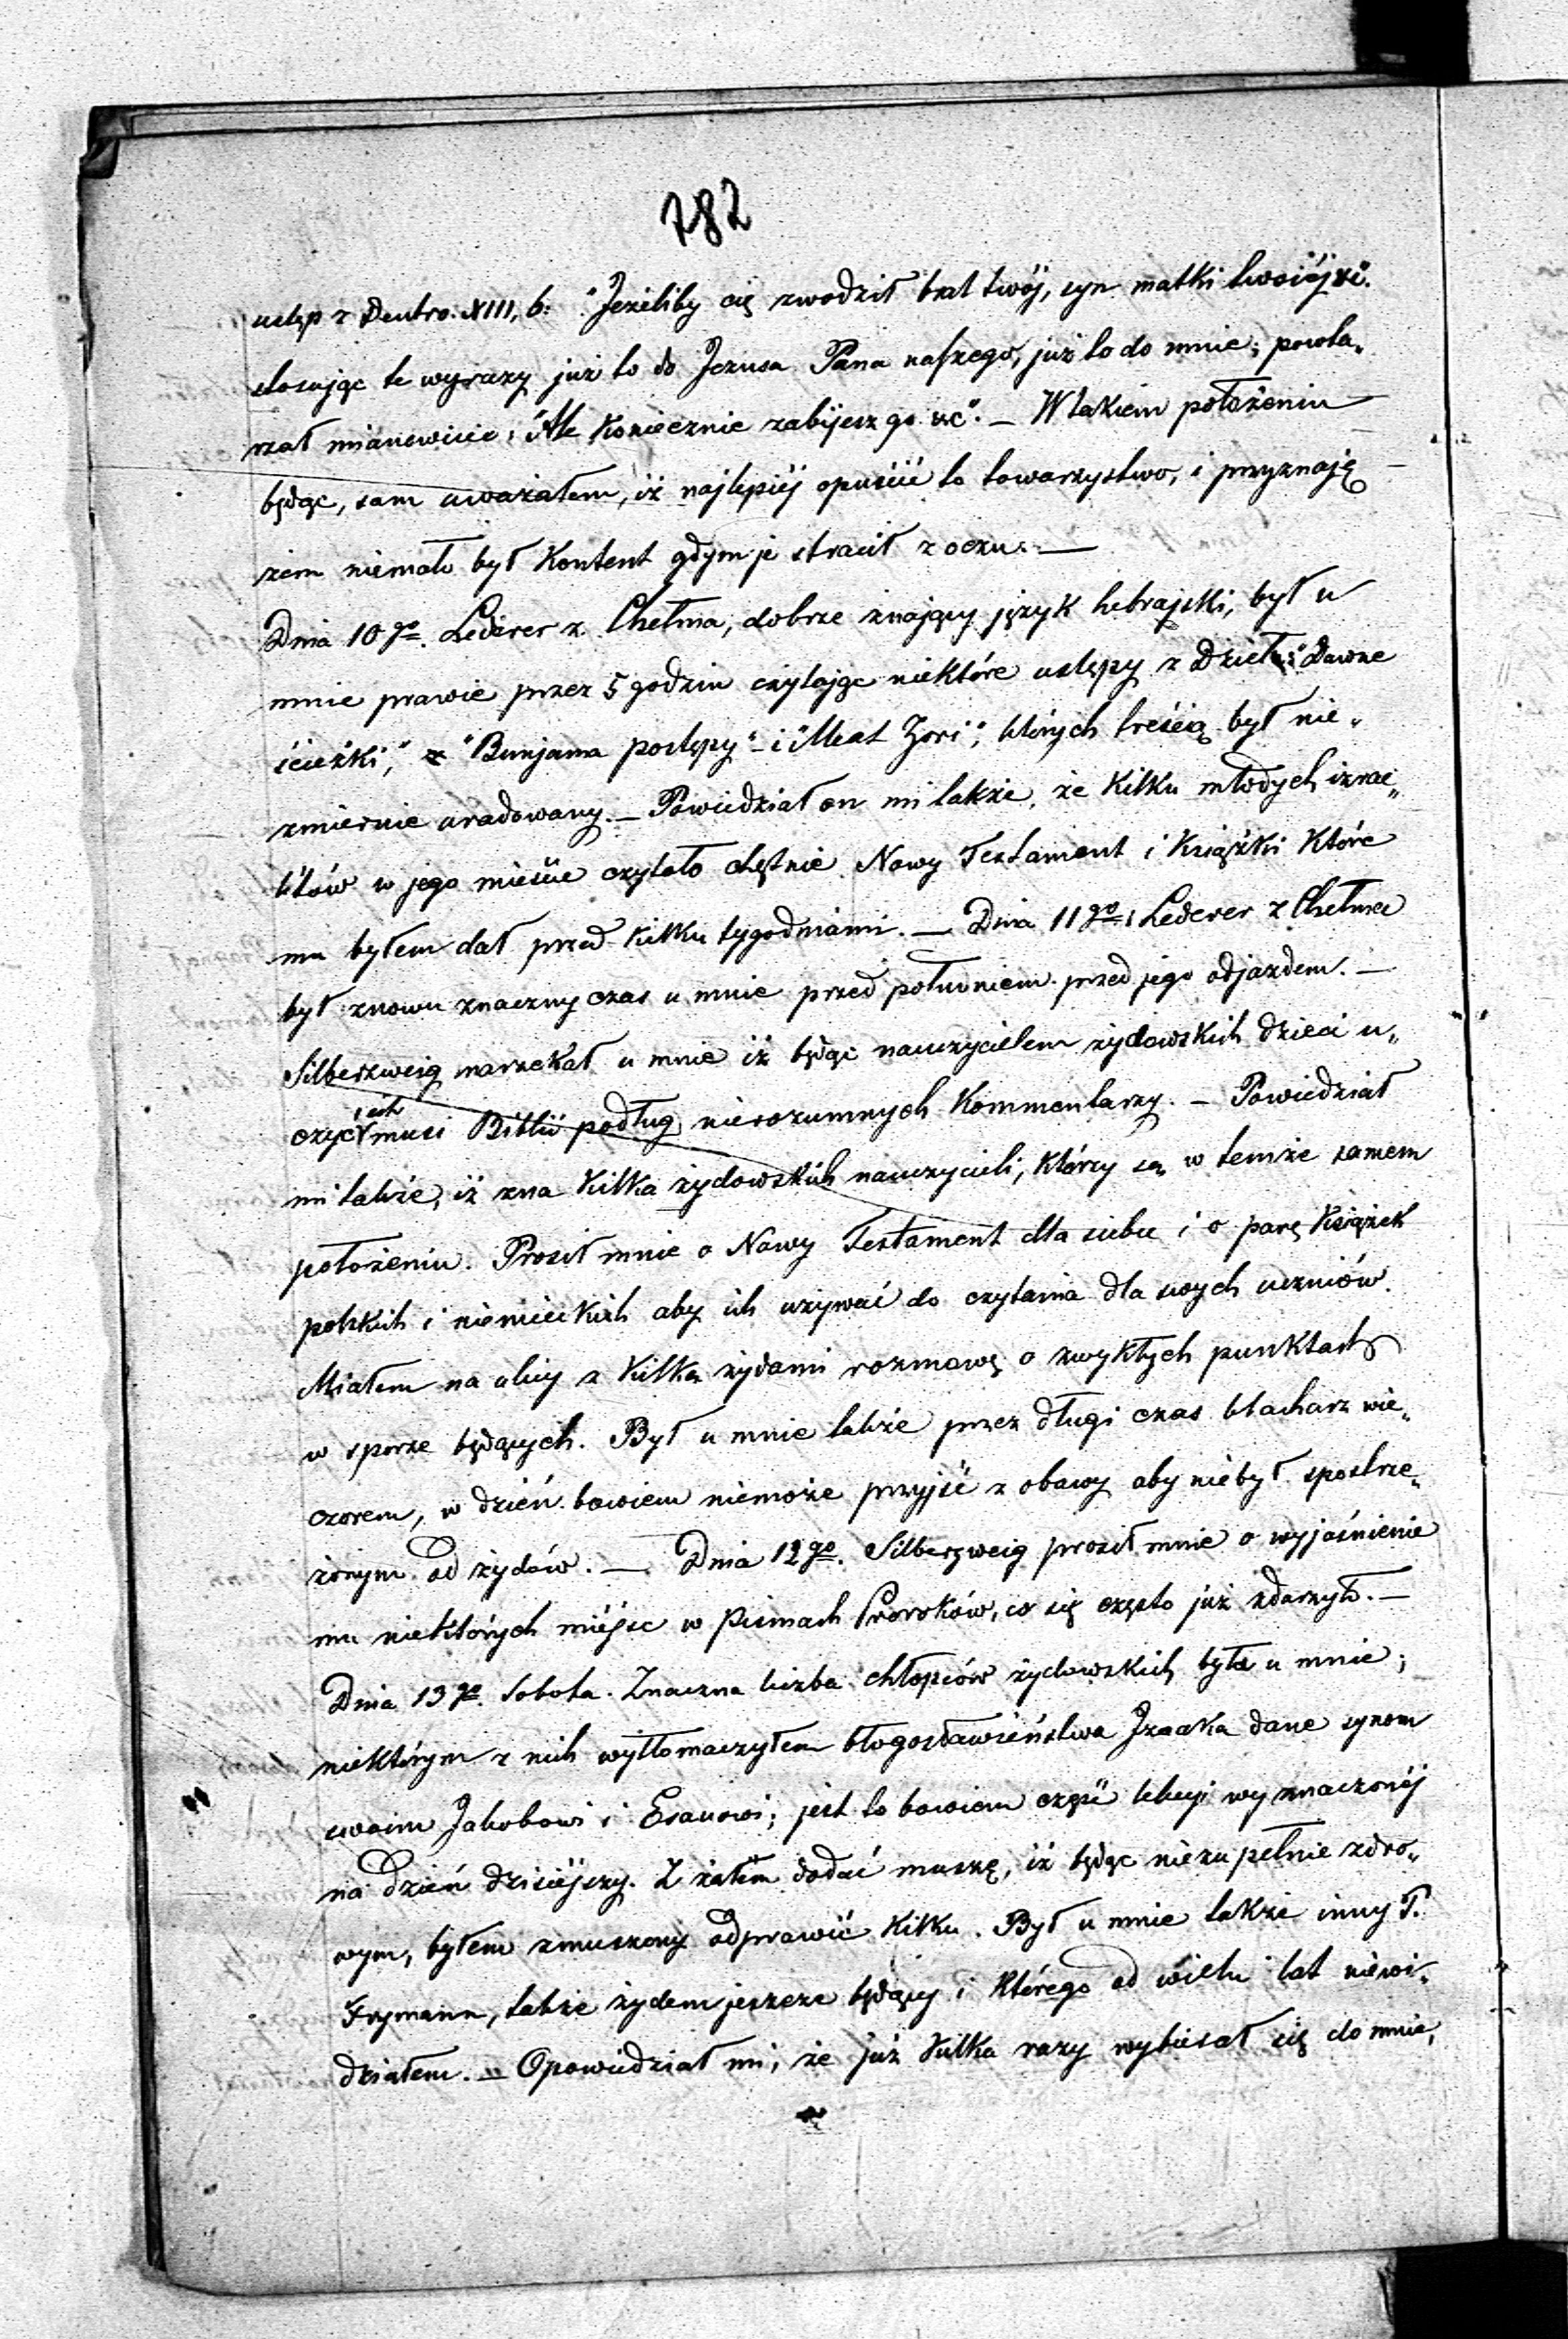 782
ustęp z Deutro. XIII, 6: "Jeżeliby cię zwodził brat twój, syn matki twojéj &c".
stosując te wyrazy już to do Jezusa Pana naszego, już to do mnie; powta„
rzał mianowicie: "Ale koniecznie zabijesz go &c". — W takiem położeniu
będąc, sam uważałem, iż najlepiéj opuścić to towarzystwo, i przyznaję
żem niemało był kontent gdym je stracił z oczu. —
Dnia 10go. Lederer z Chełma, dobrze znający język hebrajski, był u
mnie prawie przez 5 godzin czytając niektóre ustępy z Dzieł: "Dawne
ścieżki," "Bunjama postępy" - i "Meat Zori"; których treścią był nie„
zmiernie uradowany. — Powiedział on mi także, że kilku młodych izrae„
litów w jego mieście czytało chętnie Nowy Testament i książki które
mu byłem dał przed kilku tygodniami. — Dnia 11go. Lederer z Chełma
był znowu znaczny czas u mnie przed południem przed jego odjazdem. —
Silberzweig narzekał u mnie iż będąc nauczycielem żydowskich dzieci u„
czyć ich musi Biblii podług nierozumnych Kommentarzy. — Powiedział
mi także, iż zna kilka żydowskich nauczycieli, którzy są w temże samem
położeniu. Prosił mnie o Nowy Testament dla siebie i o parę książek
polskich i niemieckich aby ich używać do czytania dla swych uczniów.
Miałem na ulicy z kilką żydami rozmowę o zwykłych punktach
w sporze będących. Był u mnie także przez długi czas blacharz wie„
czorem, w dzień bowiem niemoże przyjść z obawy aby niebył spostrze„
żonym od żydów. — Dnia 12go. Silberzweig prosił mnie o wyjaśnienie
mu niektórych miéjsc w Pismach Proroków, co się często już zdarzyło. —
Dnia 13go. Sobota. Znaczna liczba chłopców żydowskich była u mnie;
niektórym z nich wytłomaczyłem błogosławieństwa Izaaka dane synom
swoim Jakobowi i Esauowi; jest to bowiem część lekcyi wyznaczonéj
na dzień dzisiéjszy. Z żalem dodać muszę, iż będąc niezupełnie zdro„
wym, byłem zmuszony odprawić kilku. Był u mnie także inny P.
Frymann, także żydem jeszcze będący i którego od wielu lat niewi„
działem. — Opowiedział mi, że już kilka razy wybierał się do mnie,